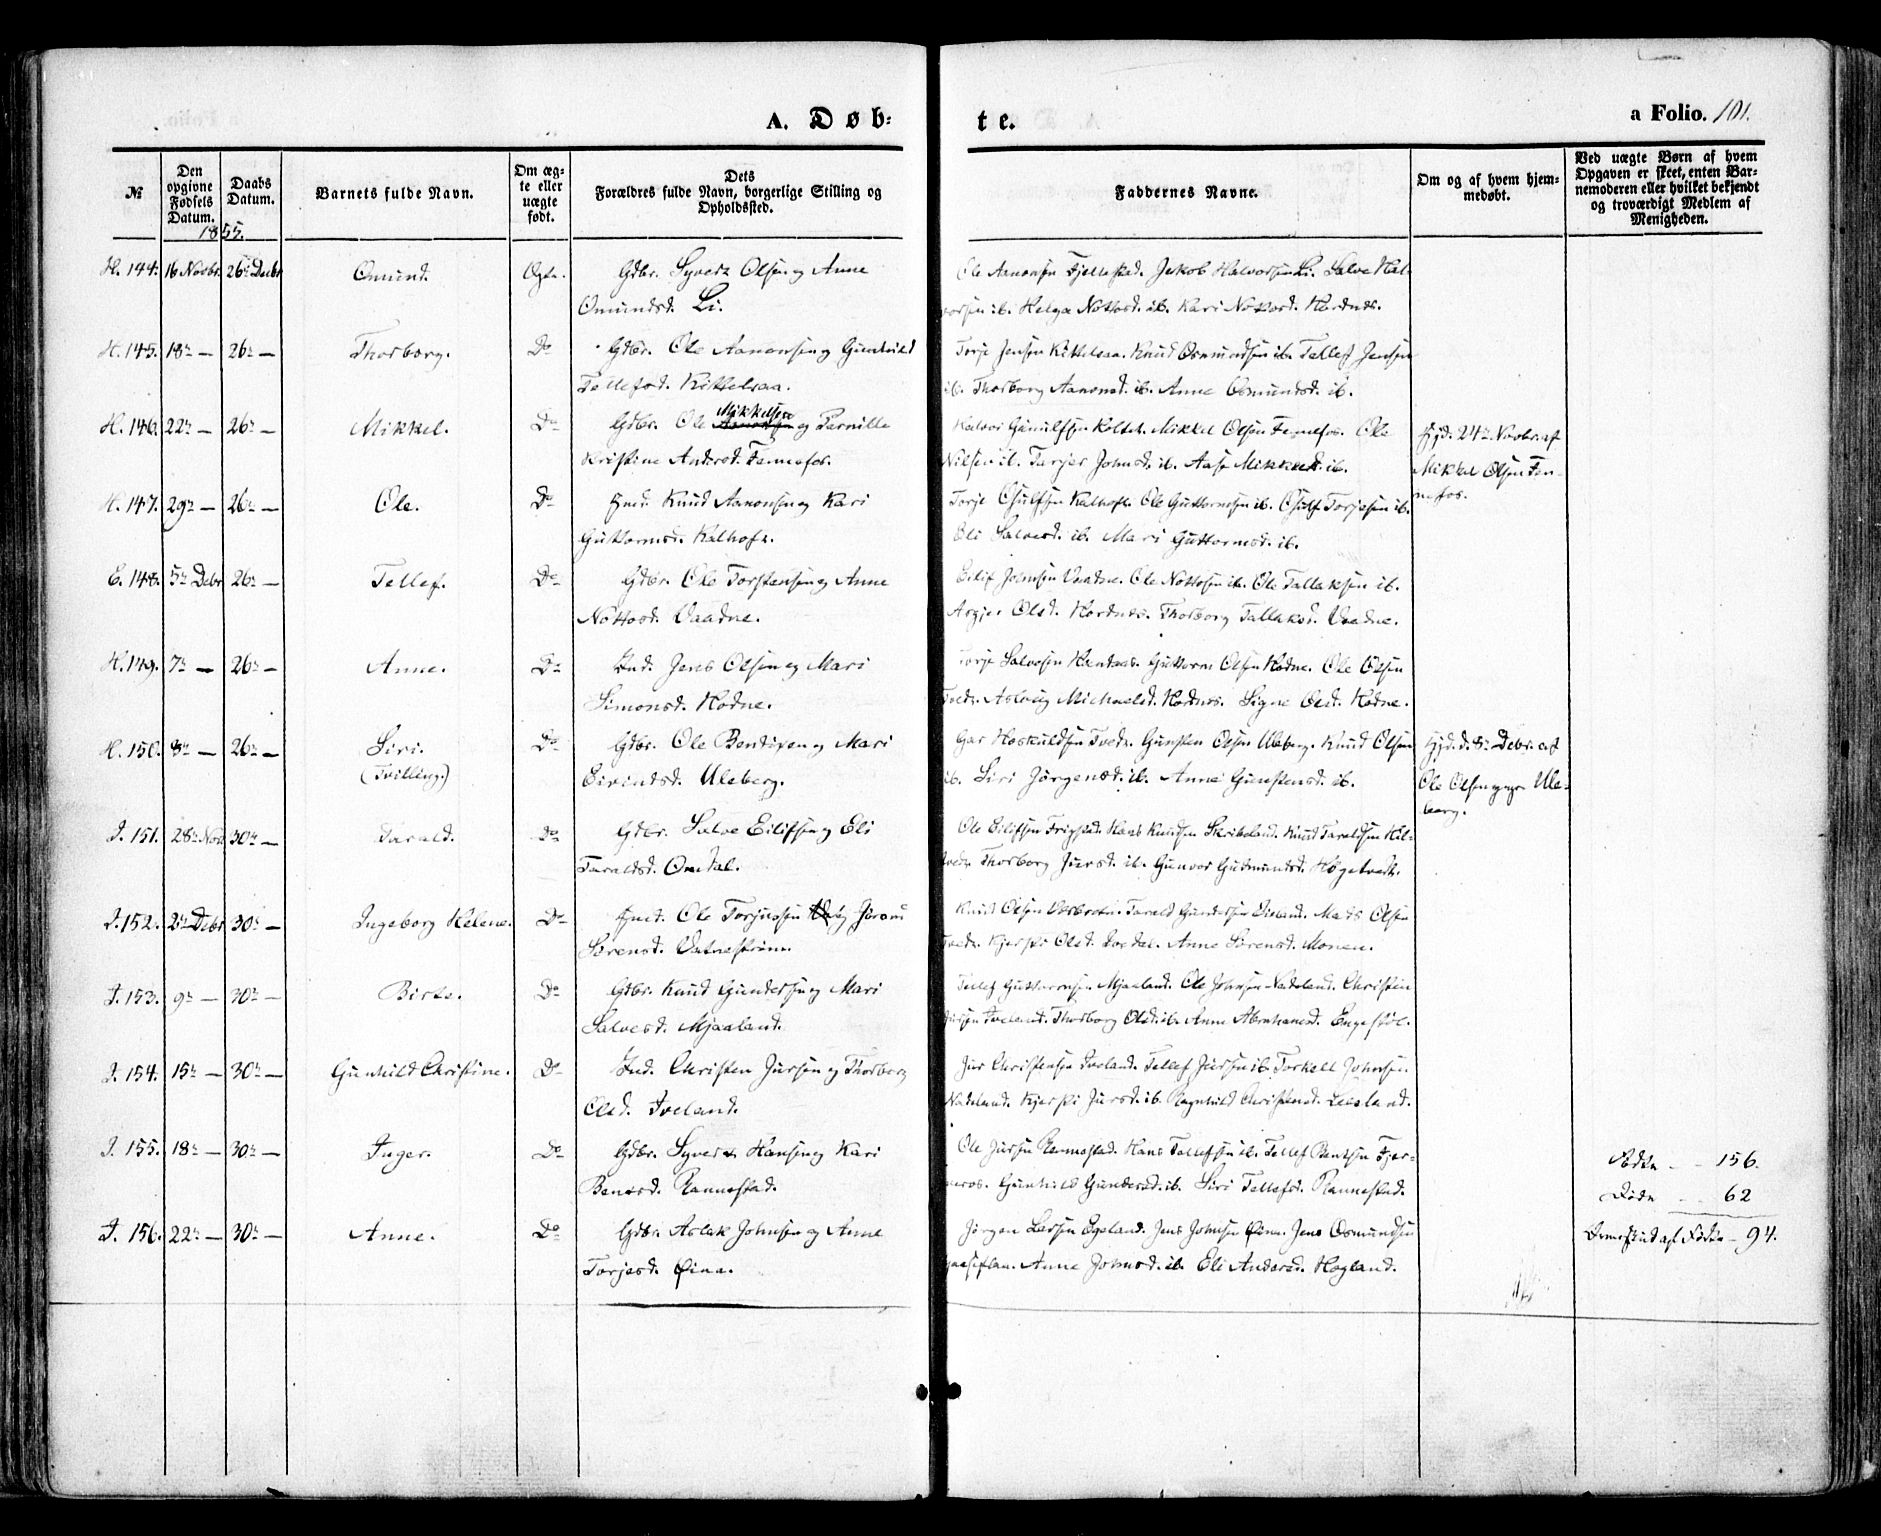 A. Døb-
te.
a Folio. 101.
№
Den opgivne Fødsels Datum.
Daabs Datum.
Barnets fulde Navn.
Om ægte eller uægte født.
Dets Forældres fulde Navn, borgerlige Stilling og Opholdssted.
Faddernes Navne.
Om og af hvem hjemmedøbt.
Ved uægte Børn af hvem Opgaven er skeet, enten Barnemoderen eller hvilket bekjendt og troværdigt Medlem af Menigheden.
1855.
H. 144. 16 Novbr. 26de Decbr Omund. Ægte. Gdbr. Syvert Olsen og Anne
Omundsd. Li.
Ole Aanonsen Fjellestad. Jakob Halvorsen Li. Salve Hal-
vorsen ib. Helga Nottosd. ib. Kari Nottosd. Hordnes.
H. 145. 18de — 26de — Thorborg. Do Gdbr. Ole Aanonsen og Gunhild
Tellefsd. Kittelsaa.
Torje Jensen Kittelsaa. Knud Osmundsen ib. Tellef Jensen
ib. Thorborg Aanonsd. ib. Anne Osmundsd. ib.
H. 146. 22de — 26de — Mikkel. Do Gdbr. Ole Mikkelsen og Pernille
Kristine Andersd. Fennefos.
Mikkel Olsen Fennefos. Ole
Nilsen ib. Torjer Johnsd. ib. Aase Mikkelsd. ib.
Hjd. 24de Novbr. af
Mikkel Olsen Fen-
nefos.
H. 147. 29de — 26de — Ole. Do Hmd. Knud Aanonsen og Kari
Guttormsd. Kalhoft.
Torje Osulfsen Kalhoft. Ole Guttormsen ib. Osulf Torjesen ib.
Eli Salvesd. ib. Mari Guttormsd. ib.
E. 148. 5te Debr 26de — Tellef. Do Gdbr. Ole Torstensen og Anne
Nottosd. Vaadne.
Eilif Johnsen Vaadne. Ole Nottosen ib. Ole Tallaksen ib.
Asgjer Olsd. Hordnes. Thorborg Tallaksd. Vaadne.
H. 149. 7de — 26de — Anne. Do Ind. Jens Olsen og Mari
Simonsd. Hodne.
Torje Salvesen Hordnes. Guttorm Olsen Hodne. Ole Olsen
Tvedt. Aslaug Michaelsd. Hordnes. Signe Olsd. Hodne.
H. 150. 8de — 26de — Siri. Do Gdbr. Ole Bentixen og Mari
(Tvilling.) Eivindsd. Uleberg.
Gar Hoskuldsen Tvedt. Gunsten Olsen Uleberg. Knud Olsen
ib. Siri Jørgensd. ib. Anne Gunstensd. ib.
Hjd. d. 8de Debr. af
Ole Olsen Ule-
berg.
I. 151. 28de Nov. 30te — Tarald. Do Gdbr. Salve Eilifsen og Eli
Taraldsd. Omdal.
Ole Eilifsen Frigstad. Hans Knudsen Skribeland. Knud Taraldsen
Thorborg Jursd. ib. Gunvor Gudmundsd. Høgetvedt.
I. 152. 2de Debr 30te — Ingeborg Helene. Do Hmd. Ole Torjussen og Joran
Sørensd. Vatnestrøm.
Knud Olsen Tarald Gundersen Mads Olsen
Kjersti Olsd. Anne Sørensd. Monen.
I. 153. 9de — 30te — Birte. Do Gdbr. Knud Gundersen og Mari
Salvesd. Mjaaland.
Tellef Guttormsen Mjaaland. Ole Johnsen Nadeland. Christen
Jursen Iveland. Thorborg Olsd. ib. Anne Abrahamsd. Engestøl.
I. 154. 15de — 30te — Gunhild Christine. Do Ind. Christen Jursen og Thorborg
Olsd. Iveland.
Jur Christensen Iveland. Tellef Jursen ib. Torkell Johnsen
Nadeland. Kjersti Jursd. ib. Ragnhild Christensd.
I. 155. 18de — 30te — Inger. Do Gdbr. Syvert Hansen og Kari
Bentsd. Rannestad.
Ole Jursen Rannestad. Hans Tellefsen ib. Tellef Bentsen Fjer-
meros. Gunhild Gundersd. ib. Siri Tellefsd. Rannestad.
I. 156. 22de — 30te — Anne. Do Gdbr. Aslak Johnsen og Anne
Torjesd. Øina.
Jørgen Larsen Egeland. Jens Johnsen Øina. Jens Osmundsen
Gaaseflaa. Anne Johnsd. ib. Eli Andersd. Hogland.
Fødte — 156.
Døde — 62
Overskud af Fødte — 94.